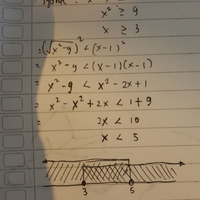 x² ≥ 9
x ≥ 3
= (√x²-9)² < (x-1)²
= x²-9 < (x-1)(x-1)
= x²-9 < x²-2x+1
= x²-x²+2x < 1+9
2x < 10
x < 5
3 5